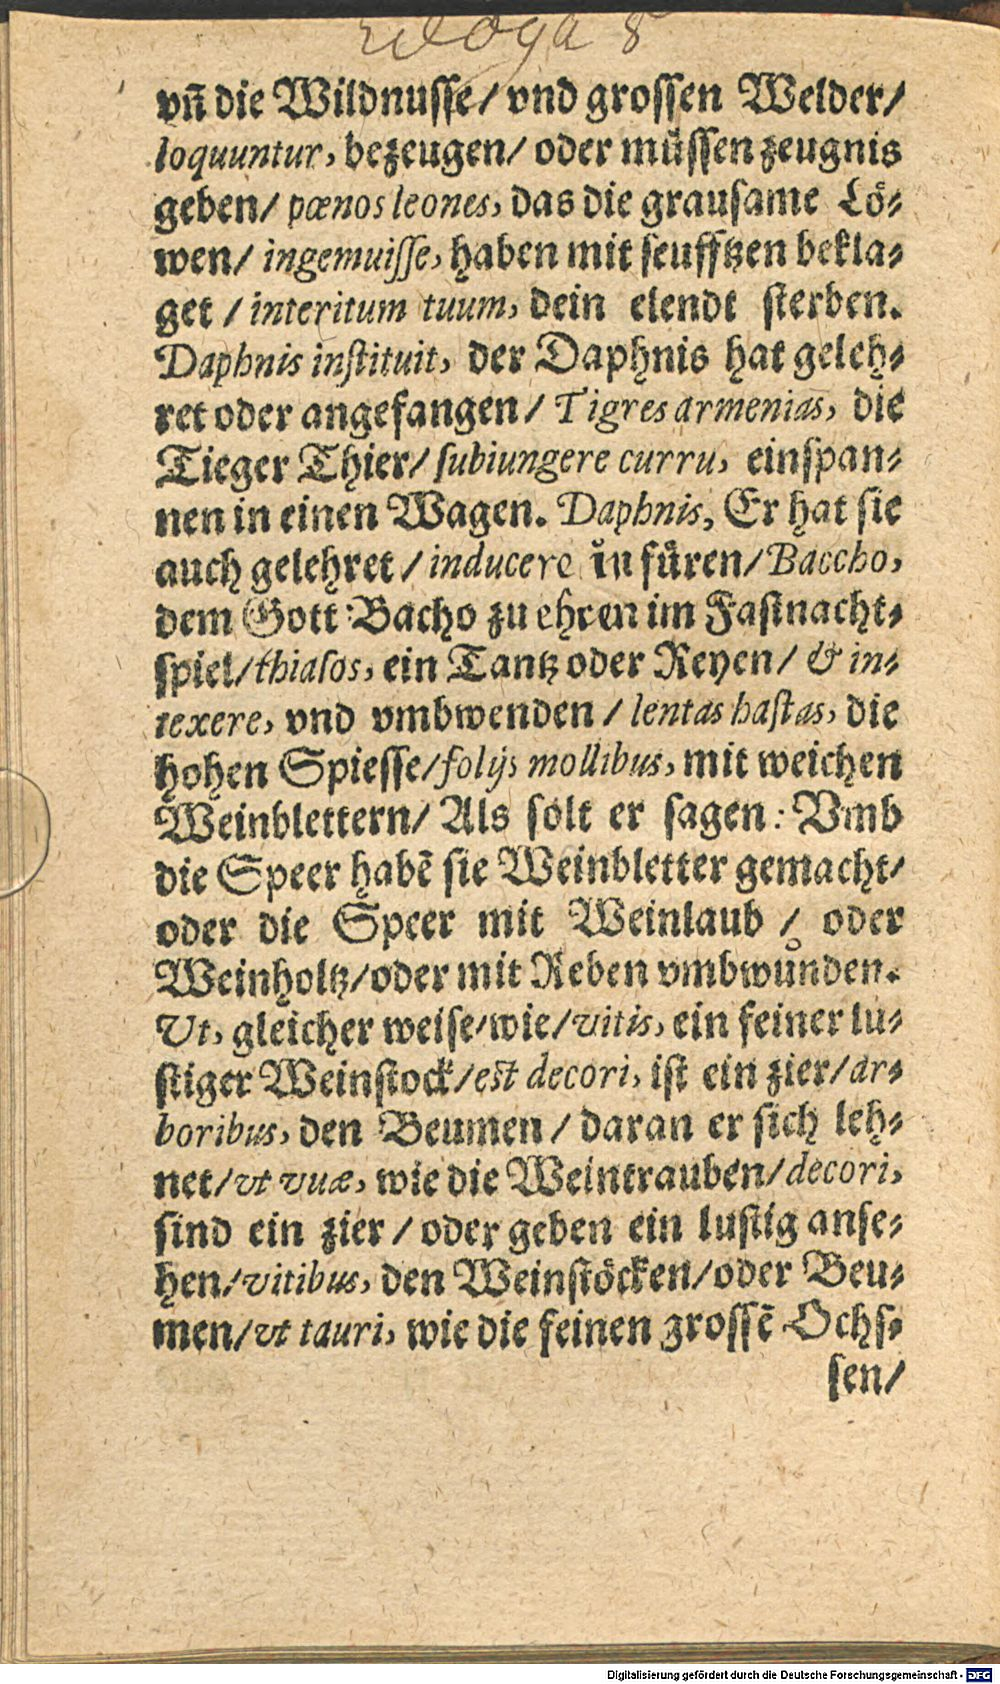 Ecloga 8
vn̄ die Wildnusse/ vnd grossen Welder/
loquuntur, bezeugen/ oder müssen zeugnis
geben/ pœnos leones, das die grausame Lö-
wen/ ingemuisse, haben mit seufftzen bekla-
get / interitum tuum, dein elendt sterben.
Daphnis instituit, der Daphnis hat geleh-
ret oder angefangen/ Tigres armenias, die
Tieger Thier/ subiungere curru, einspan-
nen in einen Wagen. Daphnis, Er hat sie
auch gelehret / inducere in füren/ Baccho,
dem Gott Bacho zu ehren im Fastnacht-
spiel/ thiasos, ein Tantz oder Reyen/ & in-
texere, vnd vmbwenden / lentas hastas, die
hohen Spiesse/ folijs mollibus, mit weichen
Weinblettern/ Als solt er sagen: Vmb
die Speer habē sie Weinbletter gemacht/
oder die Speer mit Weinlaub / oder
Weinholtz/ oder mit Reben vmbwůnden.
Ut, gleicher weise/ wie/ vitis, ein feiner lu-
stiger Weinstock/ est decori, ist ein zier/ ar-
boribus, den Beumen / daran er sich leh-
net/ vt vuæ, wie die Weintrauben/ decori,
sind ein zier / oder geben ein lustig anse-
hen/ vitibus, den Weinstöcken/ oder Beu-
men/ vt tauri, wie die feinen grossē Ochs-
sen/
Digitalisierung gefördert durch die Deutsche Forschungsgemeinschaft - DFG